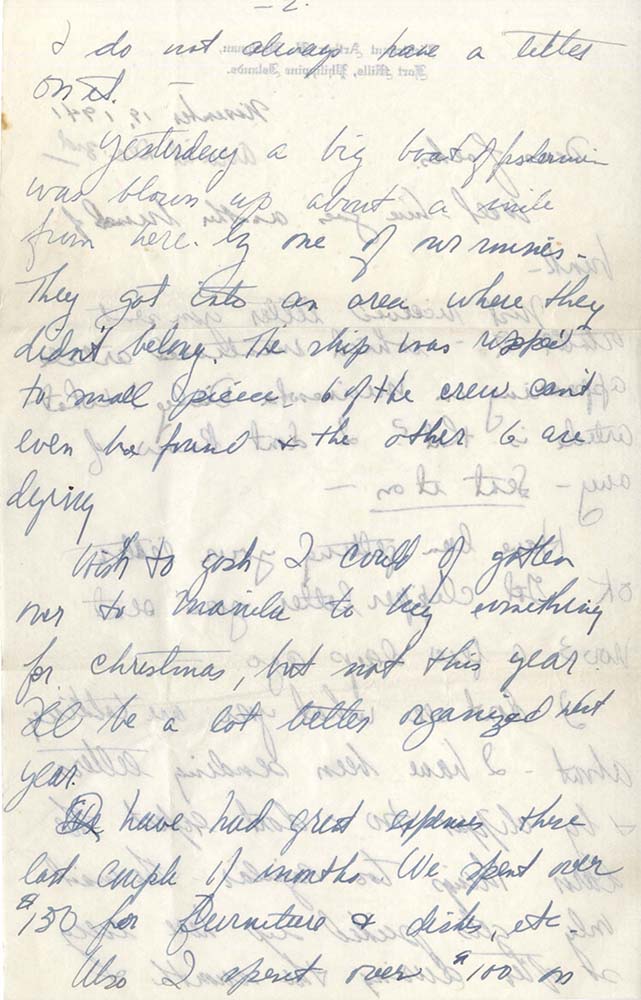 - 2 -
I do not always have a letter
on it.
Yesterday a big boat of fishermen
was blown up about a mile
from here. by one of our mines -
They got into an area where they
didn't belong. The ship was ripped
to small pieces - 6 of the crew can't
even be found & the other 6 are
dying
Wish to gosh I could of gotten
over to Manila to buy something
for Christmas, but not this year.
I'll be a lot better organized next
year.
We have had great expenses these
last couple of months. We spent over
$150 for furniture & dishes, etc -
Also I spent over $100 on